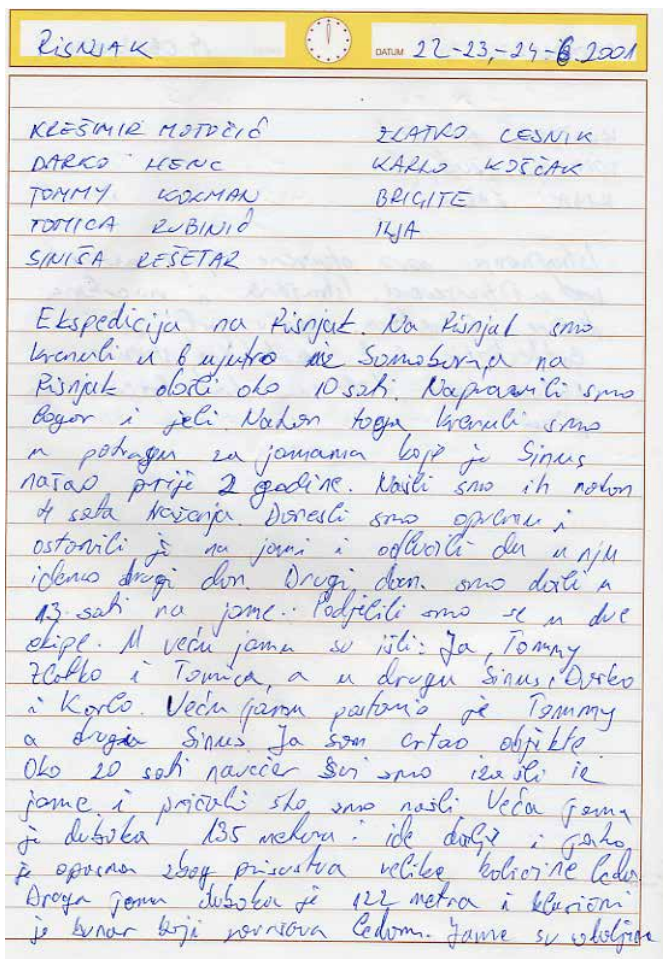 RISNJAK
DATUM 22-23,-24-6.2001
KREŠIMIR MOTOČIĆ ZLATKO CESNIK
DARKO HENC KARLO KOŠČAK
TOMMY KOKMAN BRIGITE
TOMICA RUBINIĆ ILJA
SINIŠA REŠETAR
Ekspedicija na Risnjak. Na Risnjak smo
krenuli u 6 ujutro iz Samobora, a na
Risnjak došli oko 10 sati. Napravili smo
logor i jeli. Nakon toga krenuli smo
u potragu za jamama koje je Sinus
našao prije 2 godine. Našli smo ih nakon
4 sata traženja. Donesli smo opremu i
ostavili je na jami i odlučili da u nju
idemo drugi dan. Drugi dan smo došli u
13 sati na jame. Podjelili smo se u dve
ekipe. U veću jamu su išli: Ja, Tommy
Zlatko i Tomica, a u drugu Sinus, Darko
i Karlo. Veću jamu postavio je Tommy
a drugu Sinus. Ja sam crtao objekte
Oko 20 sati navečer svi smo izašli iz
jame i pričali što smo našli. Veća jama
je duboka 135 metara i ide dalje i jako
je opasna zbog prisustva velike količine leda
Druga jama duboka je 122 metra i klasični
je bunar koji završava ledom. Jame su u